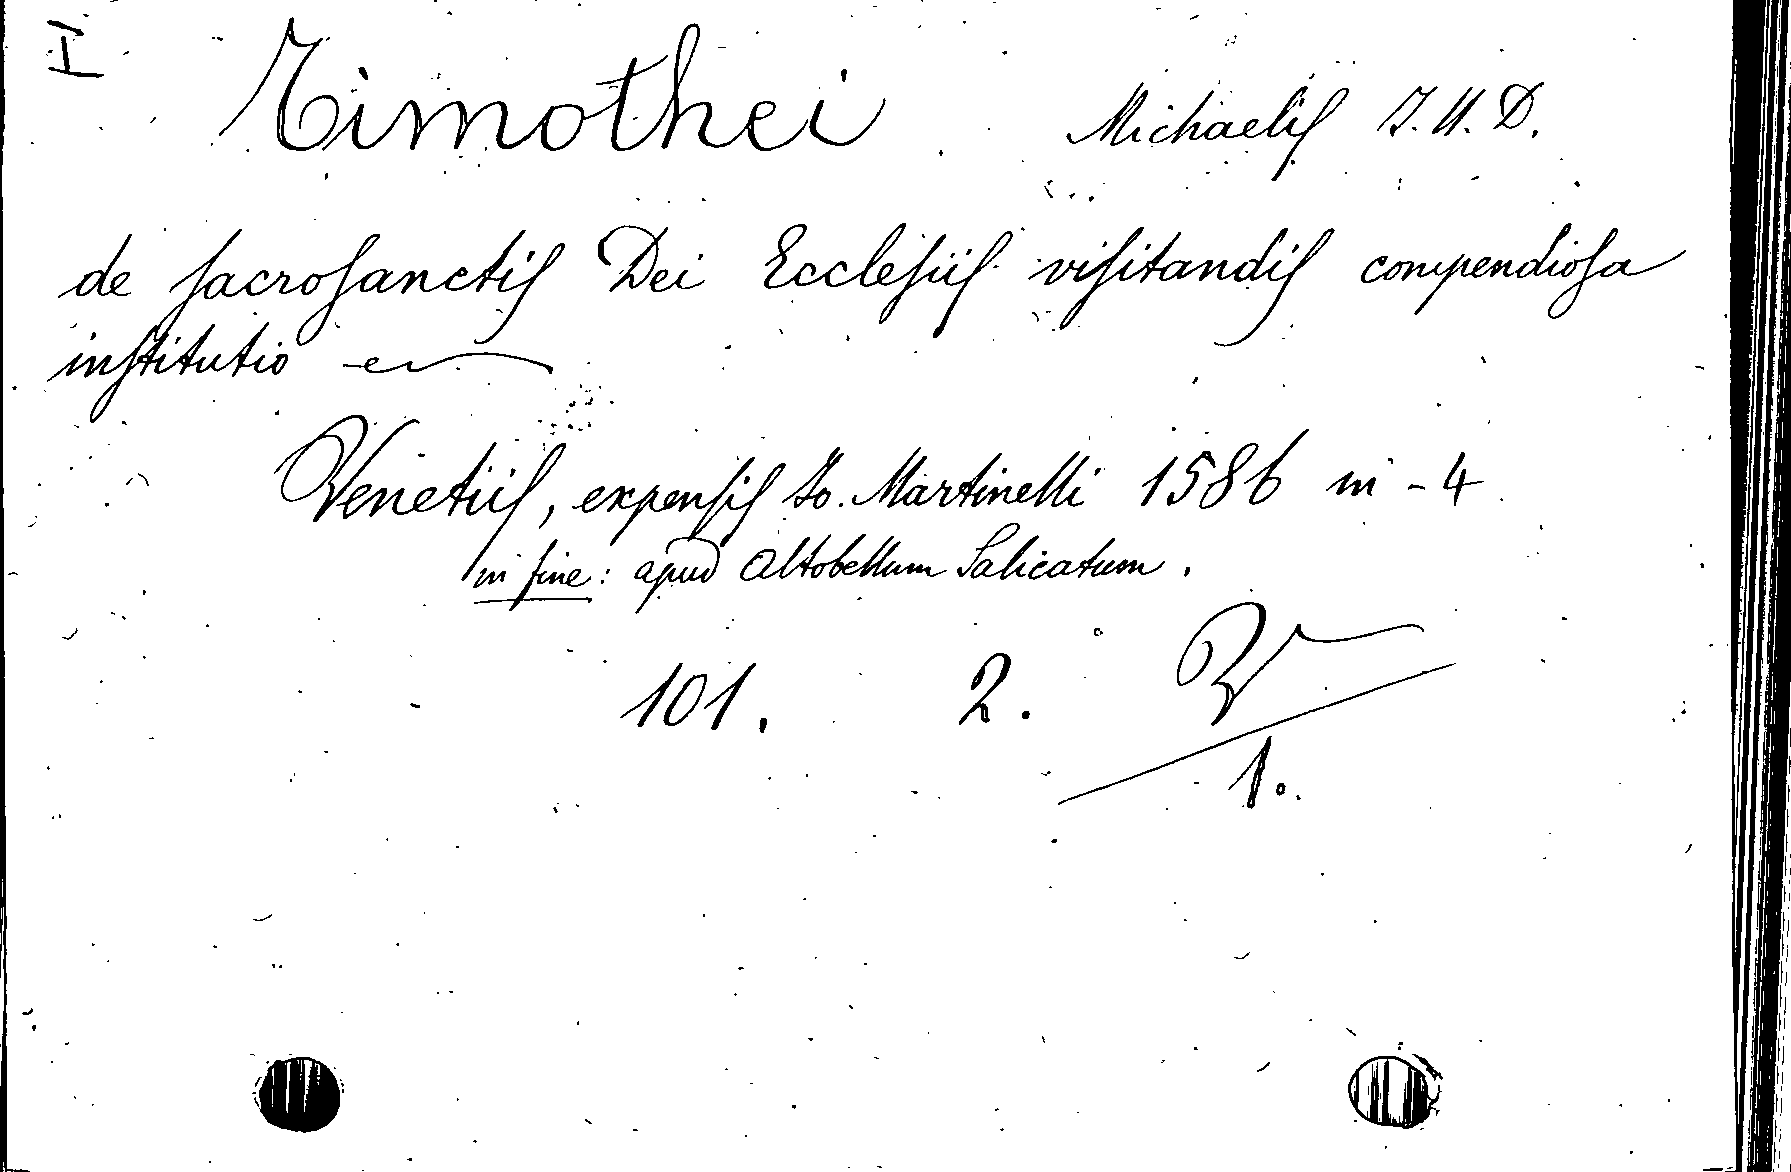 Timothei Michaelis J. U. D.
de sacrosanctis Dei Ecclesiis visitandis compendiosa
institutio
Venetiis, expensis Jo. Martinelli 1586 in - 4
in fine: apud Altobellum Salicatum.
101. 2. V
1.